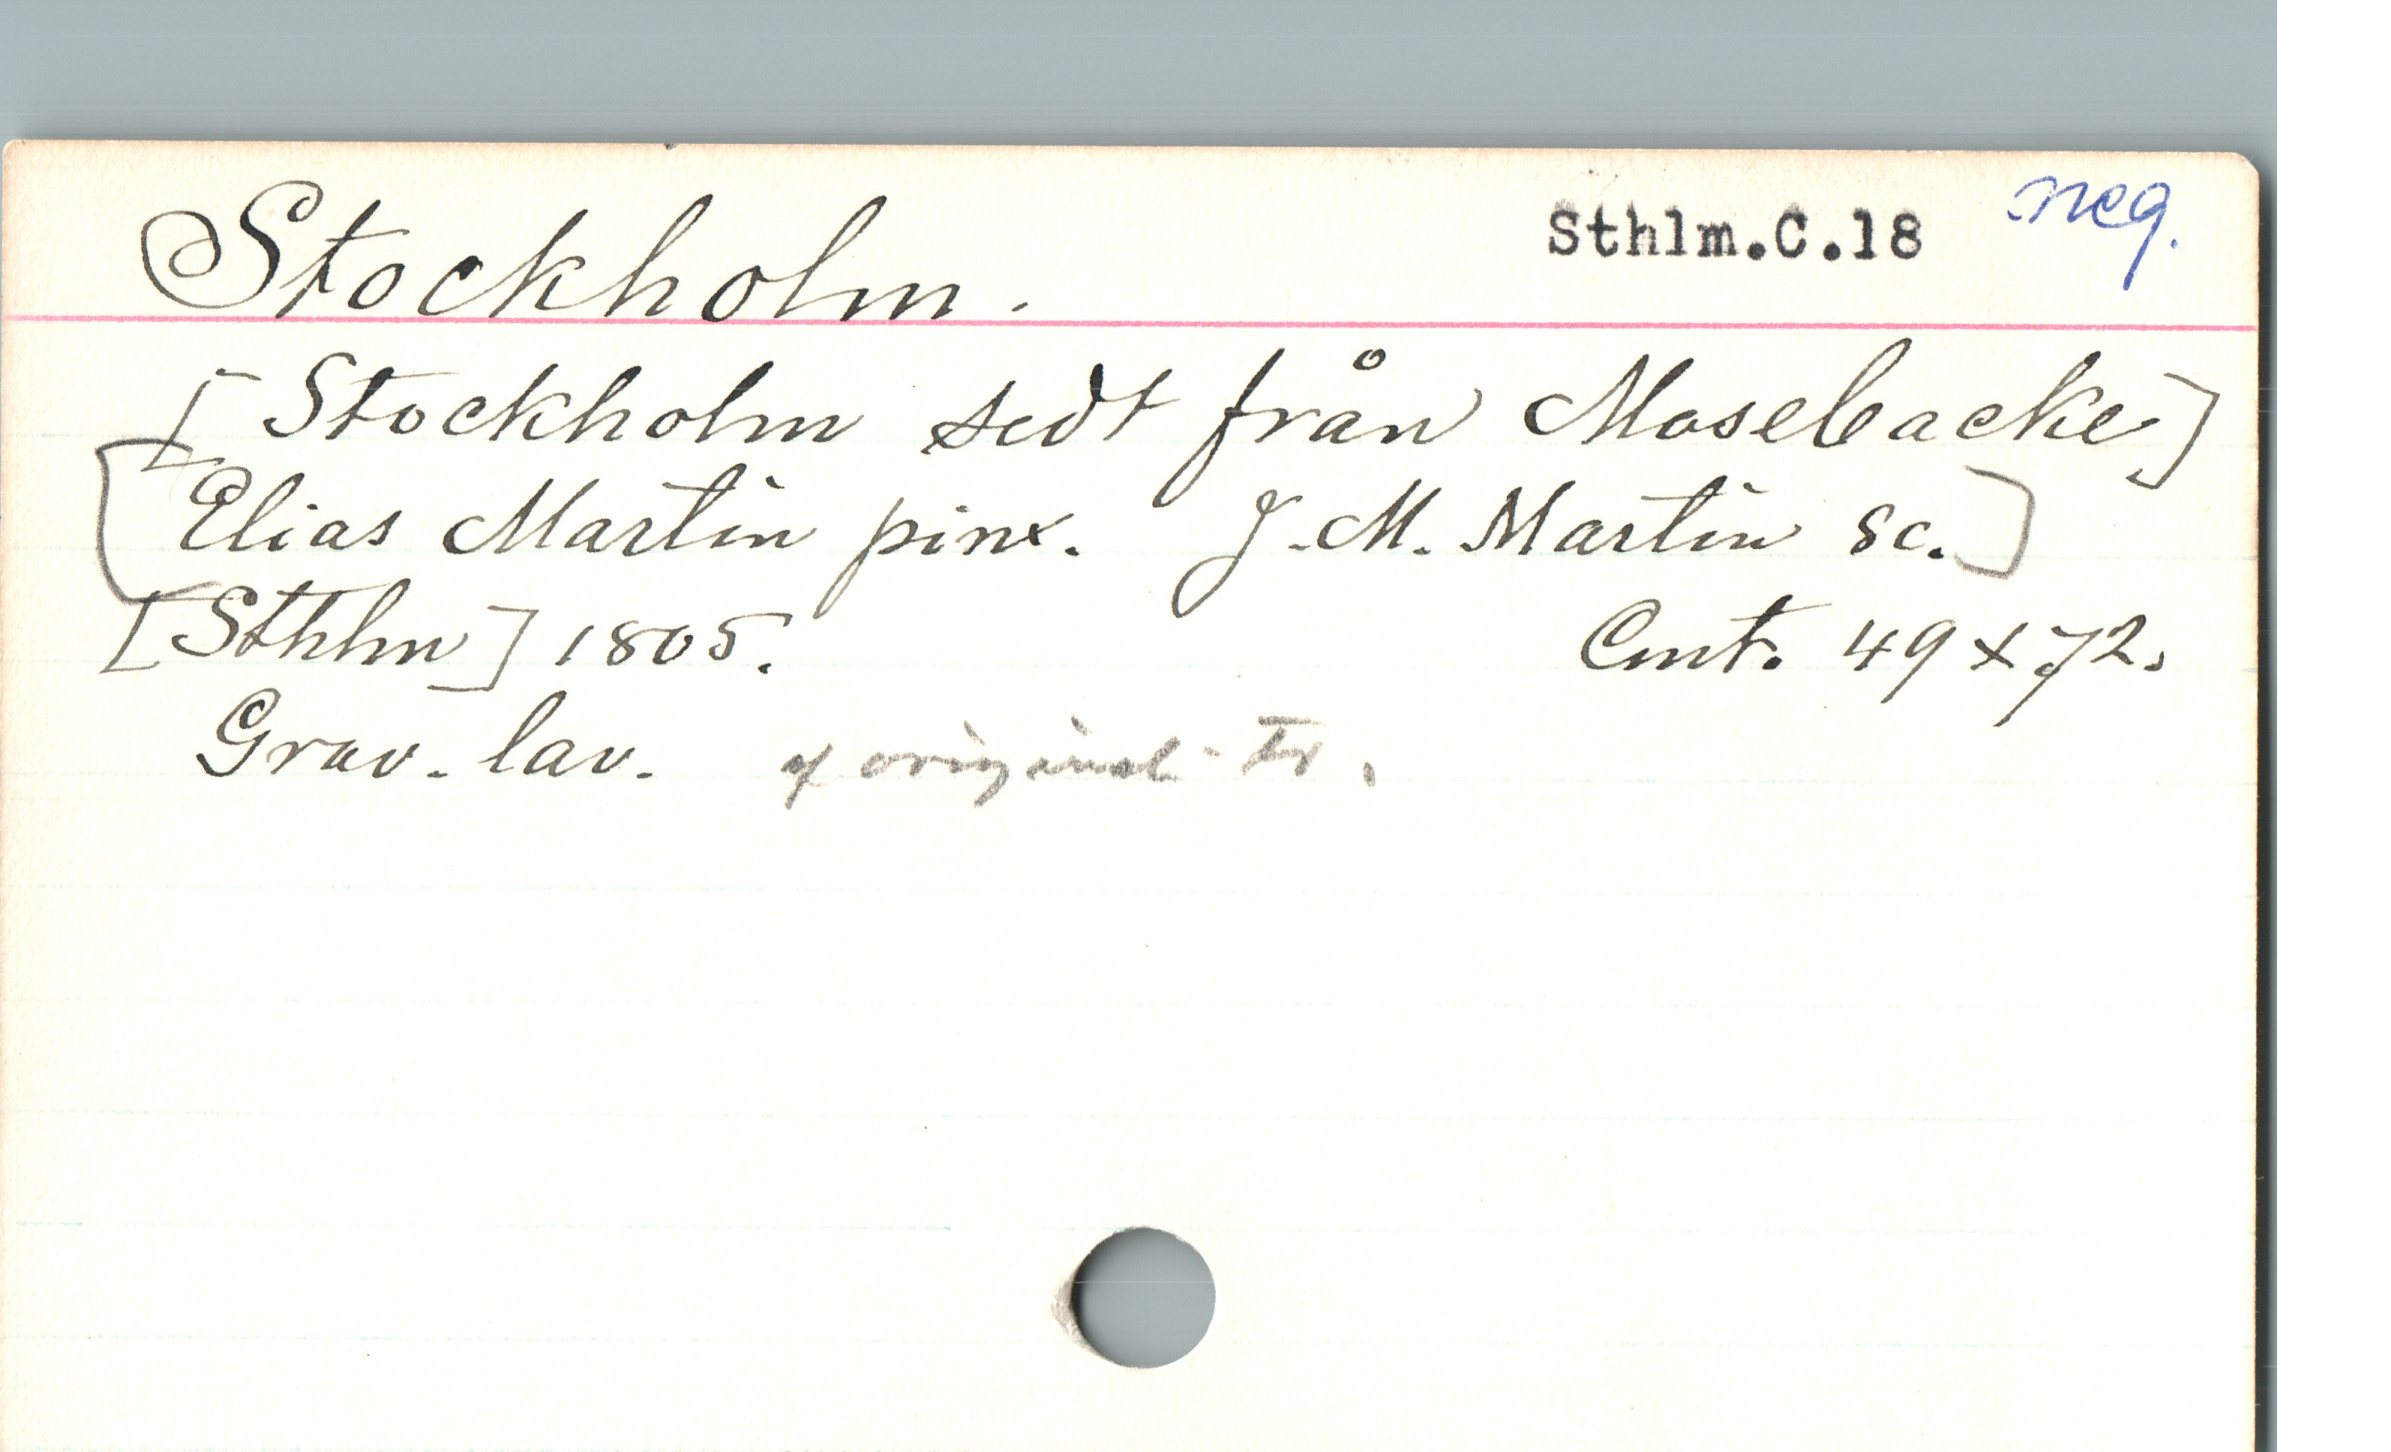 Stockholm. Sthlm.C.18 neg.
[Stockholm sedt från Mosebacke]
[Elias Martin pinx. J.M. Martin sc.]
[Sthlm] 1805. Cmt. 49 x 72.
Grav. lav. original-